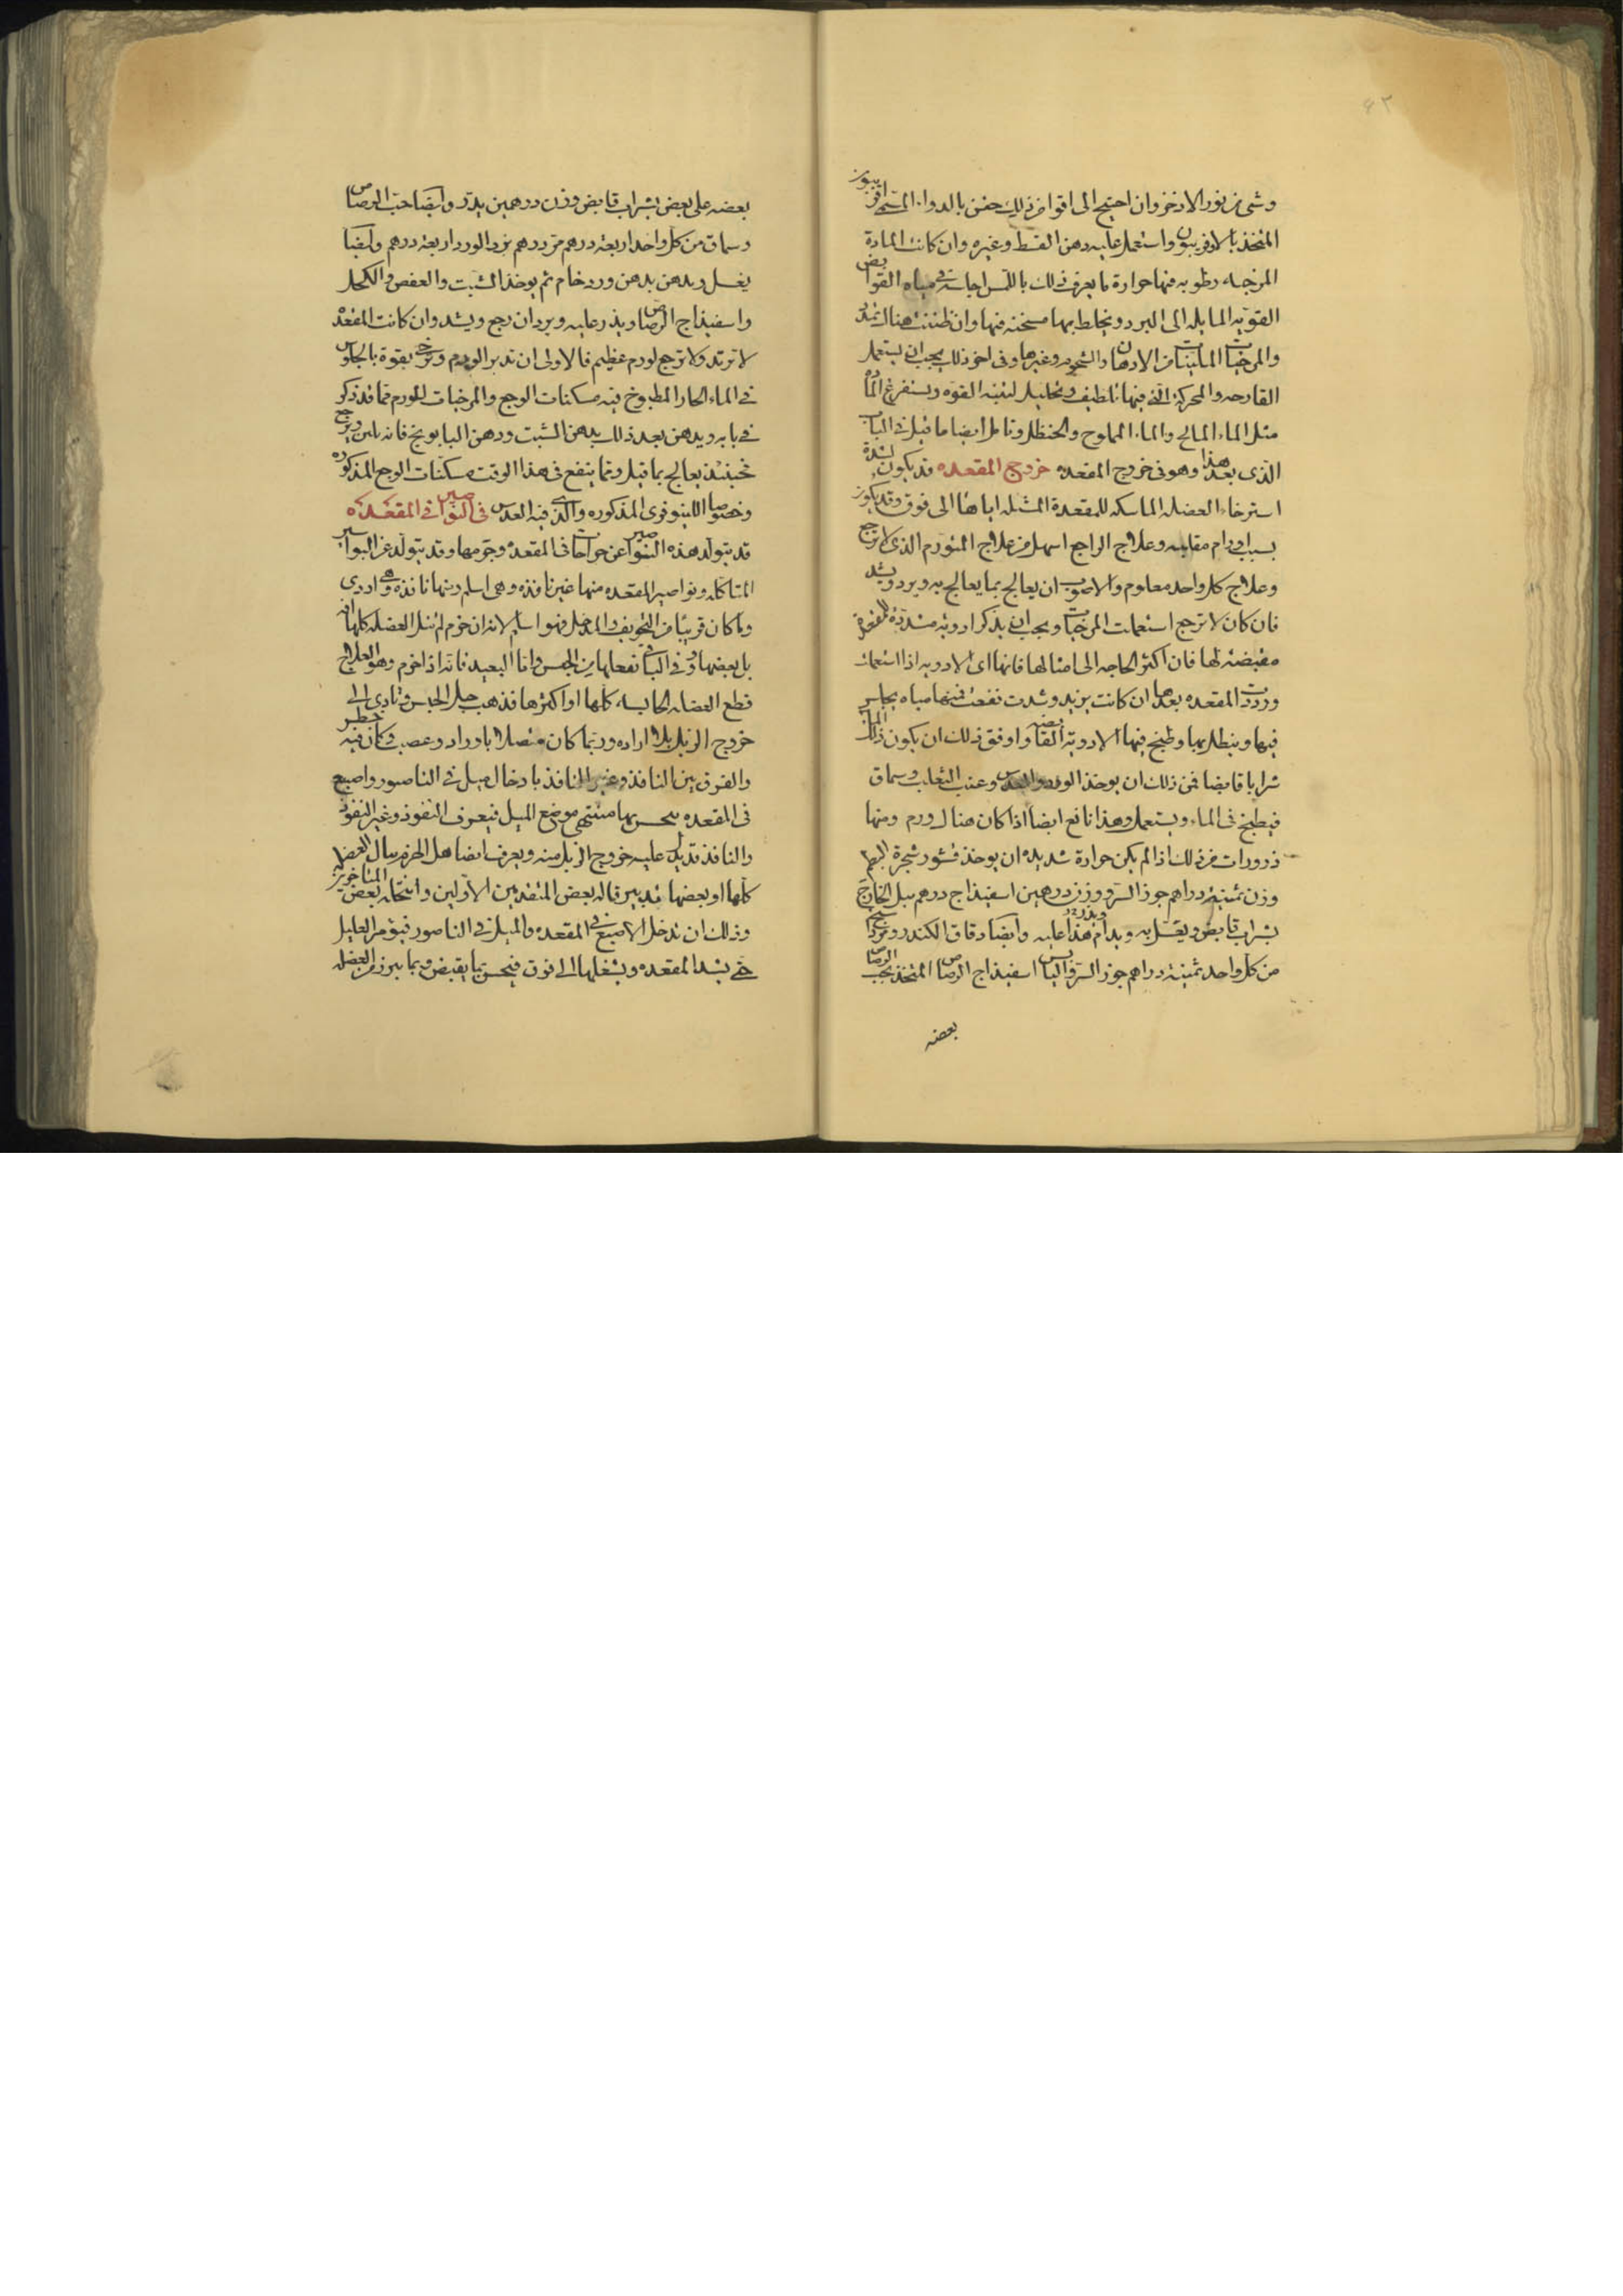 ٤٢
وشى من نور الاذخر وان احتيج الى اقوا من ذلك حقن بالدواء المتخذ
المتخذ بالاوفربيون واستعمل عليه دهن القسط وغيره وان كانت المادة
المرخيه رطوبه فيها حرارة ما يعرف ذلك باللمس اجلس فى مياه القوابض
القويه المايله الى البرد ويخلط بها مسخنه فيها وان ظننت هناك تمدد
والمرخيات الملينات من الادهان والشحوم وغيرها وفى اخر ذلك يجب ان يستعمل
القارحه والمحركة التى فيها تلطيف وتحليل لتنبه القوه ويستفرغ المادة
مثل الماء المالح والماء المملوح والحنظل وتامل ايضا ما قيل فى الباب
الذى بعد هذا وهو فى خروج المقعده خروج المقعده قد يكون لشدة
استرخاء العضله الماسكه للمقعدة المشيله اياها الى فوق وقد يكون
بسبب اورام مقلبه وعلاج الراجع اسهل من علاج المتورم الذى لا يرجع
وعلاج كل واحد معلوم والاصوب ان يعالج بما يعالج به ويرد ويشد
فان كان لا ترجع استعملت المرخيات ويجب ان يذكر ادويه مشددة للمقعدة
مقبضة لها فان اكثر الحاجه الى امثالها فانها اى الادويه اذا استعملت
وردت المقعده بعدها ان كانت بريد وشدت نفعت فمنها مياه يجلس
فيها وينطل بها وطبخ فيها الادوية القابضه واوفق ذلك ان يكون ذلك الماء
شرابا قابضا فمن ذلك ان يوخذ الورد والعدس وعنب الثعلب وسماق
فيطبخ فى الماء ويستعمل وهذا نافع ايضا اذا كان هناك ورم ومنها
ذرورات من ذلك اذا لم يكن حرارة شديده ان يوخذ قشور شجرة البطم
وزن ثمنية دراهم جوز السرو وزن درهمين اسفيذاج درهم يبل الخارج
بشراب قابض ويغسل به ويدام هذا عليه وايضا دقاق الكندر ومرداسنج
من كل واحد ثمينة دراهم جوز السرو اليابس اسفيذاج الرصاص المتخذ بحب الرصاص
بعضه
بعضه على بعض بشراب قابض وزن درهمين يذر وايضا خبث الرصاص
وسماق من كل واحد اربعة درهم مر درهم بزر الورد اربعة درهم وايضا
يغسل ويدهن بدهن ورد خام ثم يوخذ الشبت والعفص والكحل
واسفيذاج الرصاص ويذر عليه ويرد ان رجع ويشد وان كانت المقعدة
لا ترتد ولا ترجع لورم عظيم فالاولى ان تدبر الورم وترخى بقوة بالجلوس
فى الماء الحار المطبوخ فيه مسكنات الوجع والمرخيات للورم مما قد ذكر
فى بابه ويدهن بعد ذلك بدهن الشبت ودهن البابونج فانه يلين ويرجع
فحينئذ يعالج بما قيل ومما ينفع فى هذا الوقت مسكنات الوجع المذكوره
وخصوصا اللينوفرى المذكوره والذى فيه العدس فى النواصير فى المقعده
قد يتولد هذه النواصير عن جراحات فى المقعدة وخرمها وقد يتولد عن البواسير
المتاكله ونواصير المقعده منها غير نافذه وهى اسلم ومنها نافذه وهى اردى
وما كان قريبا من التجويف والمدخل فهو اسلم لانه ان خرم لم ينل العضله كلها انه
بل بعضها وفى الباقى تفعلها من الحبس واما البعيد فانه اذا خرم وهو العلاج
قطع العضله الحابسه كلها او اكثرها فذهب جل الحبس وتادى الى
خروج الزبل بلا اراده وربما كان متصلا باوراد وعصب وكان فيه خطر
والفرق بين النافذ وغير النافذ بادخال ميل فى الناصور واصبع
فى المقعده يحس بها منتهى موضع الميل فيعرف النفوذ وغير النفوذ
والنافذ قد يدل عليه خروج الزبل منه ويعرف ايضا هل الخرم ينال العضله
كلها او بعضها بتدبير قاله بعض المتقدمين الاولين وانتحله بعض المتاخرين
وذلك ان تدخل الاصبع فى المقعده والميل فى الناصور فيؤمر العليل
حتى يشد المقعده ويشيلها الى فوق فيحس بما يقبض وبما يبرز من العضله